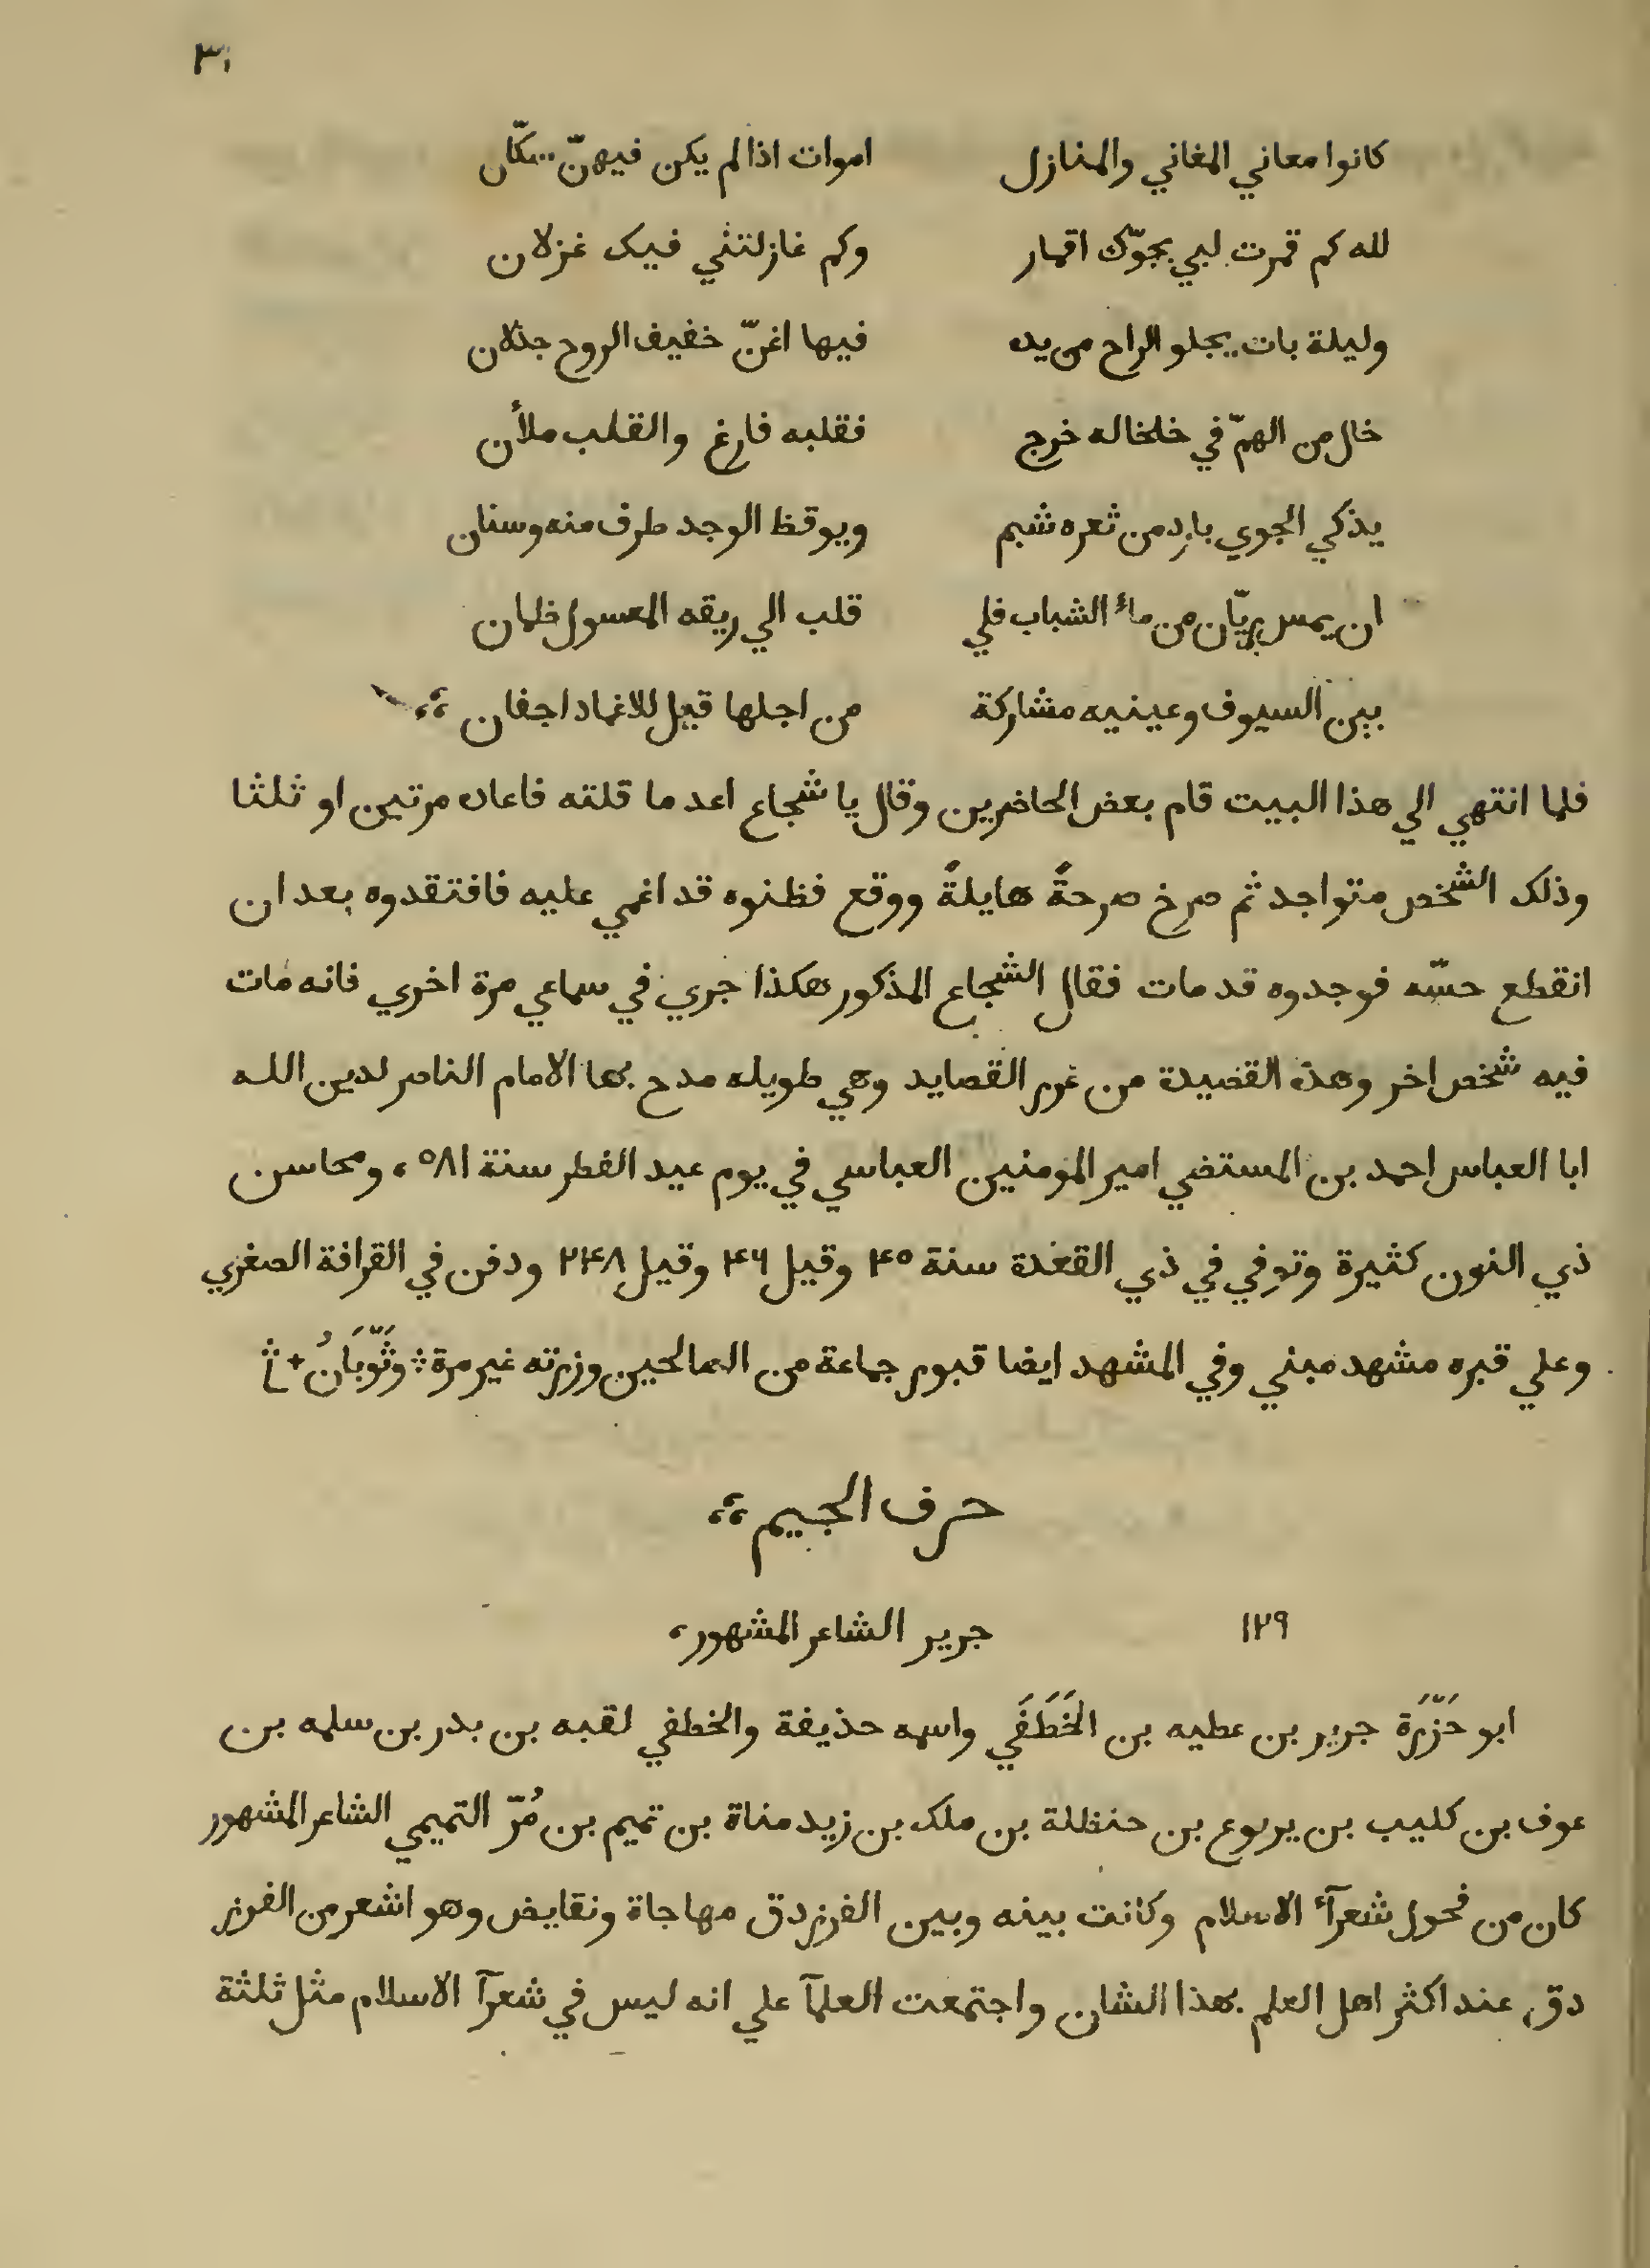 ٣١
كانوا معاني المغاني والمنازل اموات اذا لم يكن فيهنّ سكّان
لله كم قمرت لبي بجوّك اقمار وكم غازلتني فيك غزلان
وليلة بات يجلو الراح من يده فيها اغنّ خفيف الروح جذلان
خال من الهمّ في خلخاله خرج فقلبه فارغ والقلب ملأن
يذكي الجوي بارد من ثعره شبم ويوقظ الوجد طرف منه وسنان
ان يمس ريّان من ماء الشباب فلي قلب الي ريقه المعسول ظمان
بين السيوف وعينيه مشاركة من اجلها قيل للاغماد اجفان
فلما انتهي الي هذا البيت قام بعض الحاضرين وقال يا شجاع اعد ما قلته فاعاد مرتين او ثلثا
وذلك الشخص متواجد ثم صرخ صرحةً هايلةً ووقع فظنوه قد اغمي عليه فافتقدوه بعد ان
انقطع حسّه فوجدوه قد مات فقال الشجاع المذكور هكذا جري في سماعي مرة اخري فانه مات
فيه شخص اخر وهذه القضيدة من غرر القصايد وهي طويله مدح بها الامام الناصر لدين الله
ابا العباس احمد بن المستضي امير المومنين العباسي في يوم عيد الفطر سنة ٥٨١، ومحاسن
ذي النون كثيرة وتوفي في ذي القغدة سنة ٤٥ وقيل ٤٦ وقيل ٢٤٨ ودفن في القرافة الصغري
وعلي قبره مشهد مبني وفي المشهد ايضا قبور جماعة من الصالحين وزرته غير مرة وثَّوبَانُ
حرف الجيم
١٢٩ جرير الشاعر المشهور،
ابو حَزّرَة جرير بن عطيه بن الخَطَفَي واسمه حذيفة والخطفي لقبه بن بدر بن سلمه بن
عوف بن كليب بن يربوع بن حنظلة بن ملك بن زيد مناة بن تميم بن مُرّ التميمي الشاعر المشهور
كان من فحول شعرآء الاسلام وكانت بينه وبين الفرزدق مهاجاة ونقايض وهو اشعر من الفرز
دق عند اكثر اهل العلم بهذا الشان واجتمعت العلمآ علي انه ليس في شعرآ الاسلام مثل ثلثة